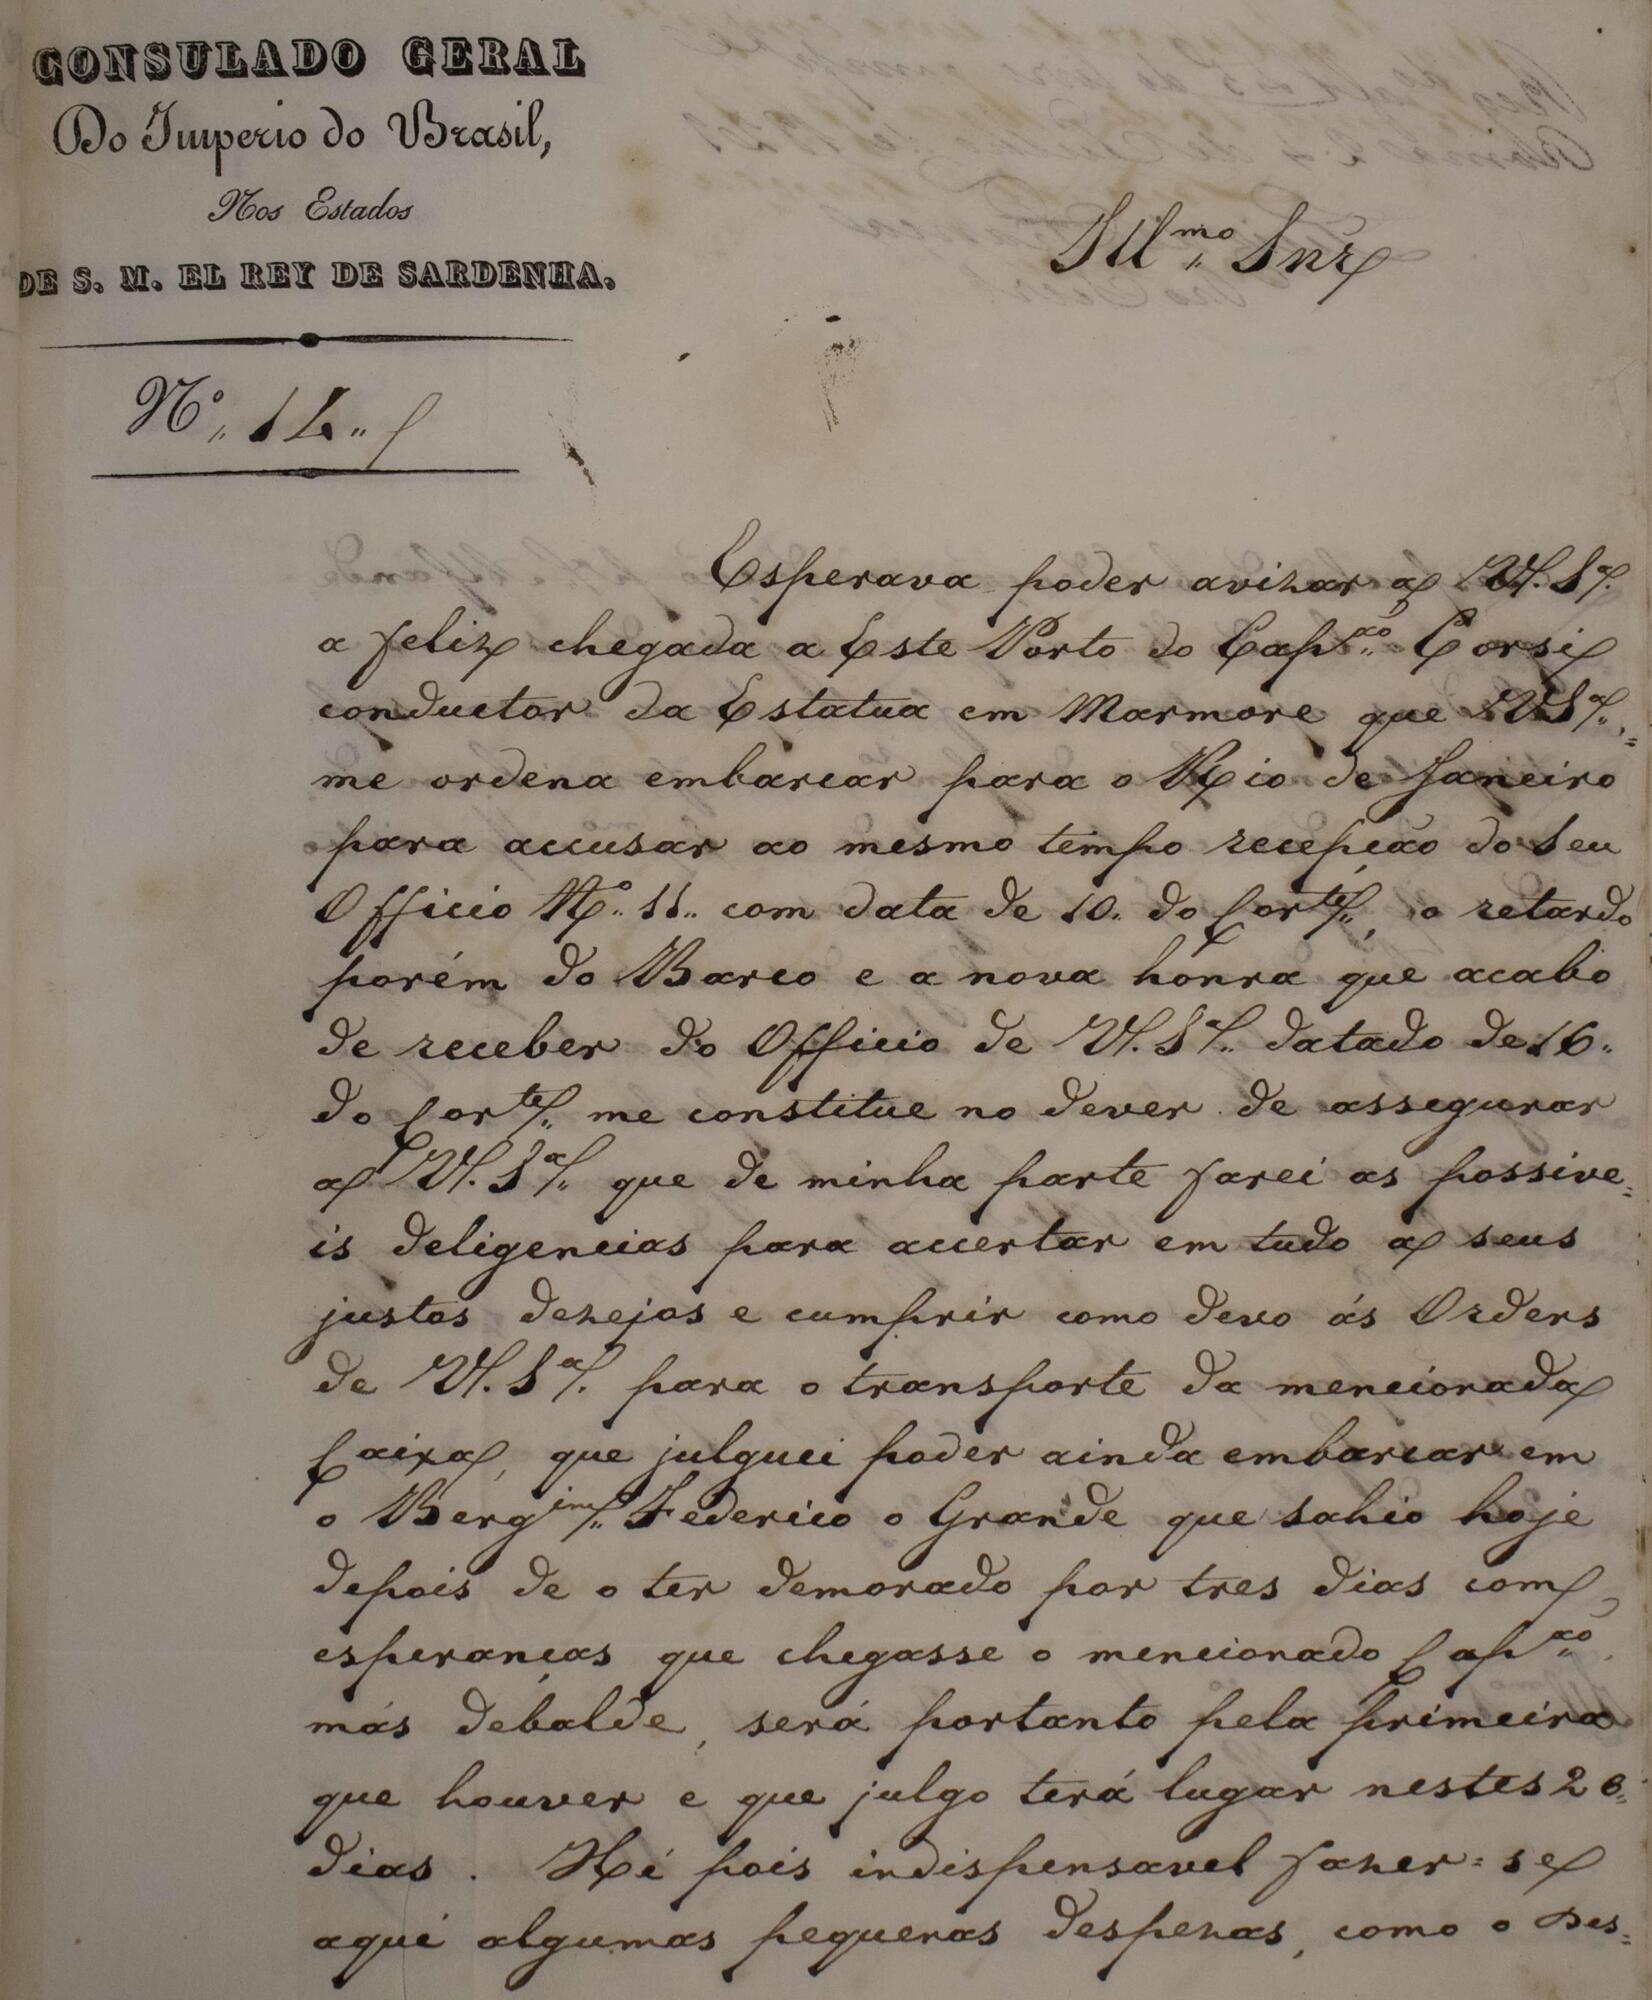 CONSULADO GERAL
Do Imperio do Brasil,
Nos Estados
DE S. M. EL REY DE SARDENHA.
Illmo Snr
Nº 14
Esperava poder avizar a V. Sª.
a feliz chegada a Este Porto do Capão Corsi
conductor da Estatua em Marmore que V Sª.
me ordena embarcar para o Rio de Janeiro
para accusar ao mesmo tempo recepção do Seu
Officio Nº 11 com data de 10. do Corte, o retardo
porém do Barco e a nova honra que acabo
de receber do Officio de V. Sª. datado de 16.
do Corte. me constitue no dever de assegurar
a V. Sª. que de minha parte farei as possive=
is deligencias para accertar em tudo a seus
justos dezejos e cumprir como devo ás Orders
de V. Sª. para o transporte da mencionada
Caixa, que julguei poder ainda embarcar em
o Bergim. Federico o Grande que sahio hoje
depois de o ter demorado por tres dias com
esperanças que chegasse o mencionado Capão.
más debalde, será portanto pela primeira
que houver e que julgo terá lugar nestes 20
dias. Hé pois indispensavel fazer=se
aqui algumas pequenas despezas, como o Des=